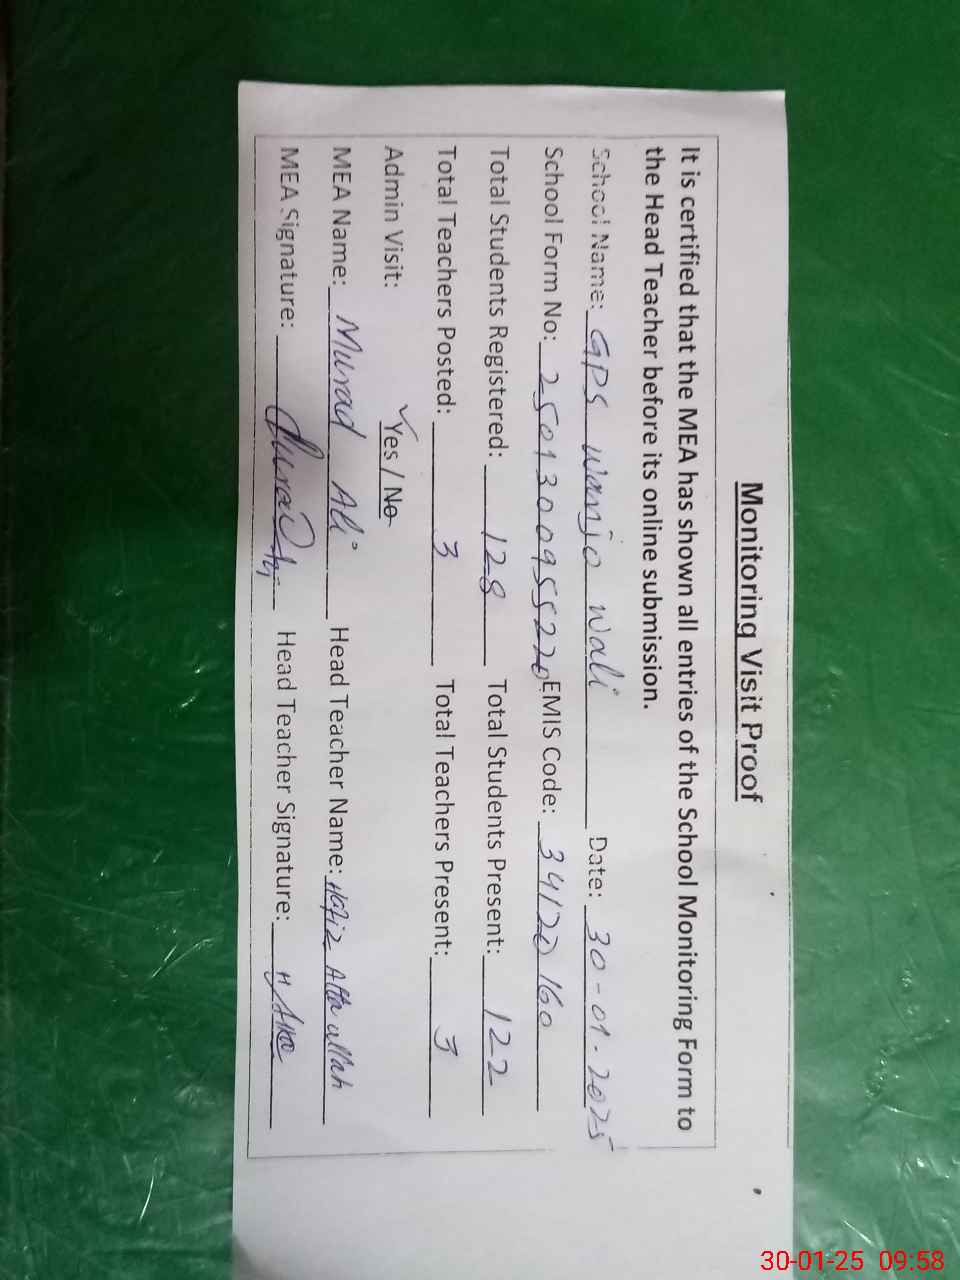 Monitoring Visit Proof
It is certified that the MEA has shown all entries of the School Monitoring Form to
the Head Teacher before its online submission.
School Name: GPS Wanjo Wali Date: 30-01-2025
School Form No: 2501300955220 EMIS Code: 34120160
Total Students Registered: 128 Total Students Present: 122
Total Teachers Posted: 3 Total Teachers Present: 3
Admin Visit: ✓Yes / No
MEA Name: Murad Ali Head Teacher Name: Hafiz Atta ullah
MEA Signature: Murad Ali Head Teacher Signature:
30-01-25 09:58